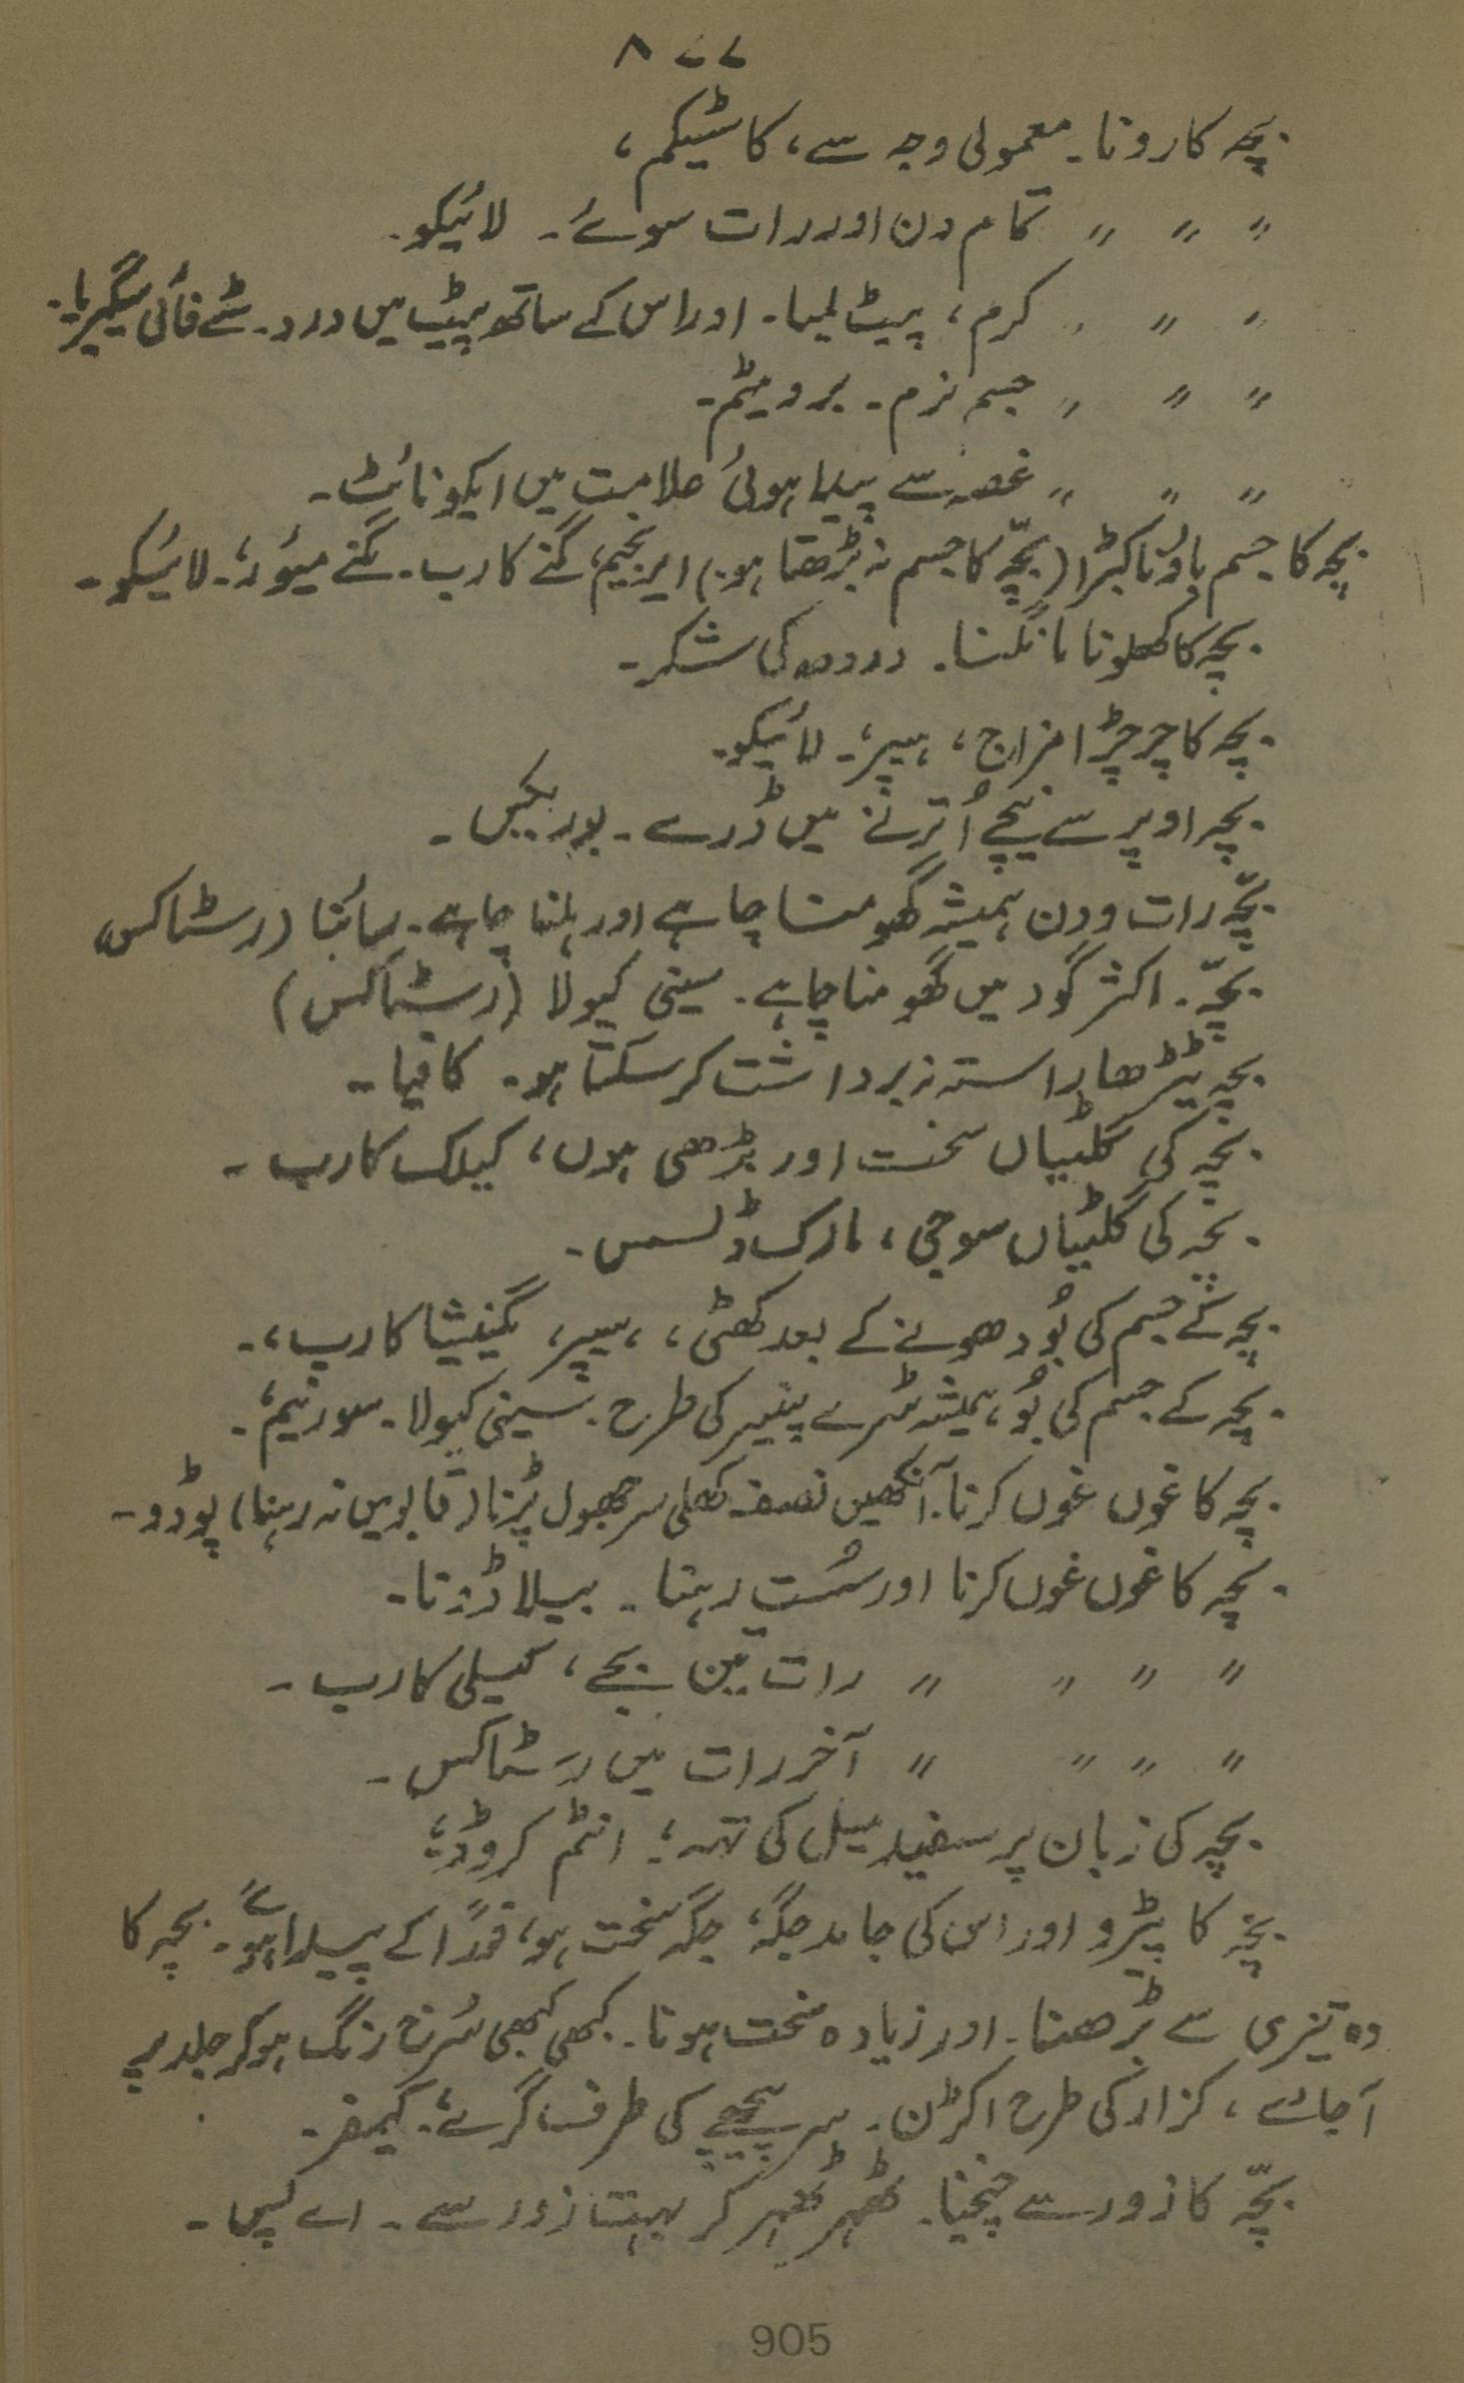 ۸۷۷
بچہ کا رونا۔ معمولی وجہ سے، کاسٹیکم،
〃 〃 〃 تمام دن اور رات سوئے۔ لائیکو۔
〃 〃 〃 کرم، پیٹ لمبا۔ اور اس کے ساتھ پیٹ میں درد۔ سٹے فائی سیگیریا۔
〃 〃 〃 جسم نرم۔ برومیٹم۔
〃 〃 〃 غصہ سے پیدا ہوئی علامت میں ایکونائٹ۔
بچہ کا جسم باؤنا کبڑا (بچّہ کا جسم نہ بڑھتا ہو۔) ایرنجیم، گنے کارب۔ گنے میور،۔ لائیکو۔
بچہ کا کھلونا مانگنا۔ دودھ کی شکر۔
بچہ کا چرچڑا مزاج، ہیپر،۔ لائیکو۔
بچہ اوپر سے نیچے اُترنے میں ڈرے۔ بوریکس۔
بچّہ رات و دن ہمیشہ گھومنا چاہے اور ہلنا چاہے۔ سائنا (رسٹاکس)
بچّہ۔ اکثر گود میں گھومنا چاہے۔ سینی کیولا (رسٹاکس)
بچہ ٹیڑھا راستہ نہ برداشت کر سکتا ہو۔ کافیا۔
بچہ کی گلٹیاں سخت اور بڑھی ہوں، کیلک کارب۔
بچہ کی گلٹیاں سوجی، مارک ڈلسس۔
بچہ کے جسم کی بُو دھونے کے بعد کھٹی، ہیپر، مگنیشیا کارب،۔
بچہ کے جسم کی بُو، ہمیشہ سڑے پنیر کی طرح۔ سینی کیولا۔ سورنیم،۔
بچہ کا غوں غوں کرنا۔ آنکھیں نصف کھلی سر جھول پڑنا (قابو میں نہ رہنا) پوڈو۔
بچہ کا غوں غوں کرنا اور سُست رہنا۔ بیلاڈونا۔
〃 〃 〃 〃 رات تین بجے، کیلی کارب۔
〃 〃 〃 〃 آخر رات میں رسٹاکس۔
بچہ کی زبان پر سفید میل کی تہہ،؛ انٹم کروڈ،؛
بچہ کا پیڑو اور اس کی جامد جگہ، جگہ سخت ہو، فوراً کے پیدا ہوئے۔ بچہ کا
وہ تیزی سے بڑھنا۔ اور زیادہ سخت ہونا۔ کبھی کبھی سُرخ رنگ ہو کر جلد پہ
آ جائے، کزاز کی طرح اکڑن۔ سر پیچھے کی طرف گرے،۔ کیمفر۔
بچّہ کا زور سے چیخنا۔ ٹھہر ٹھہر کر بہت زور سے۔ اے پس۔
905